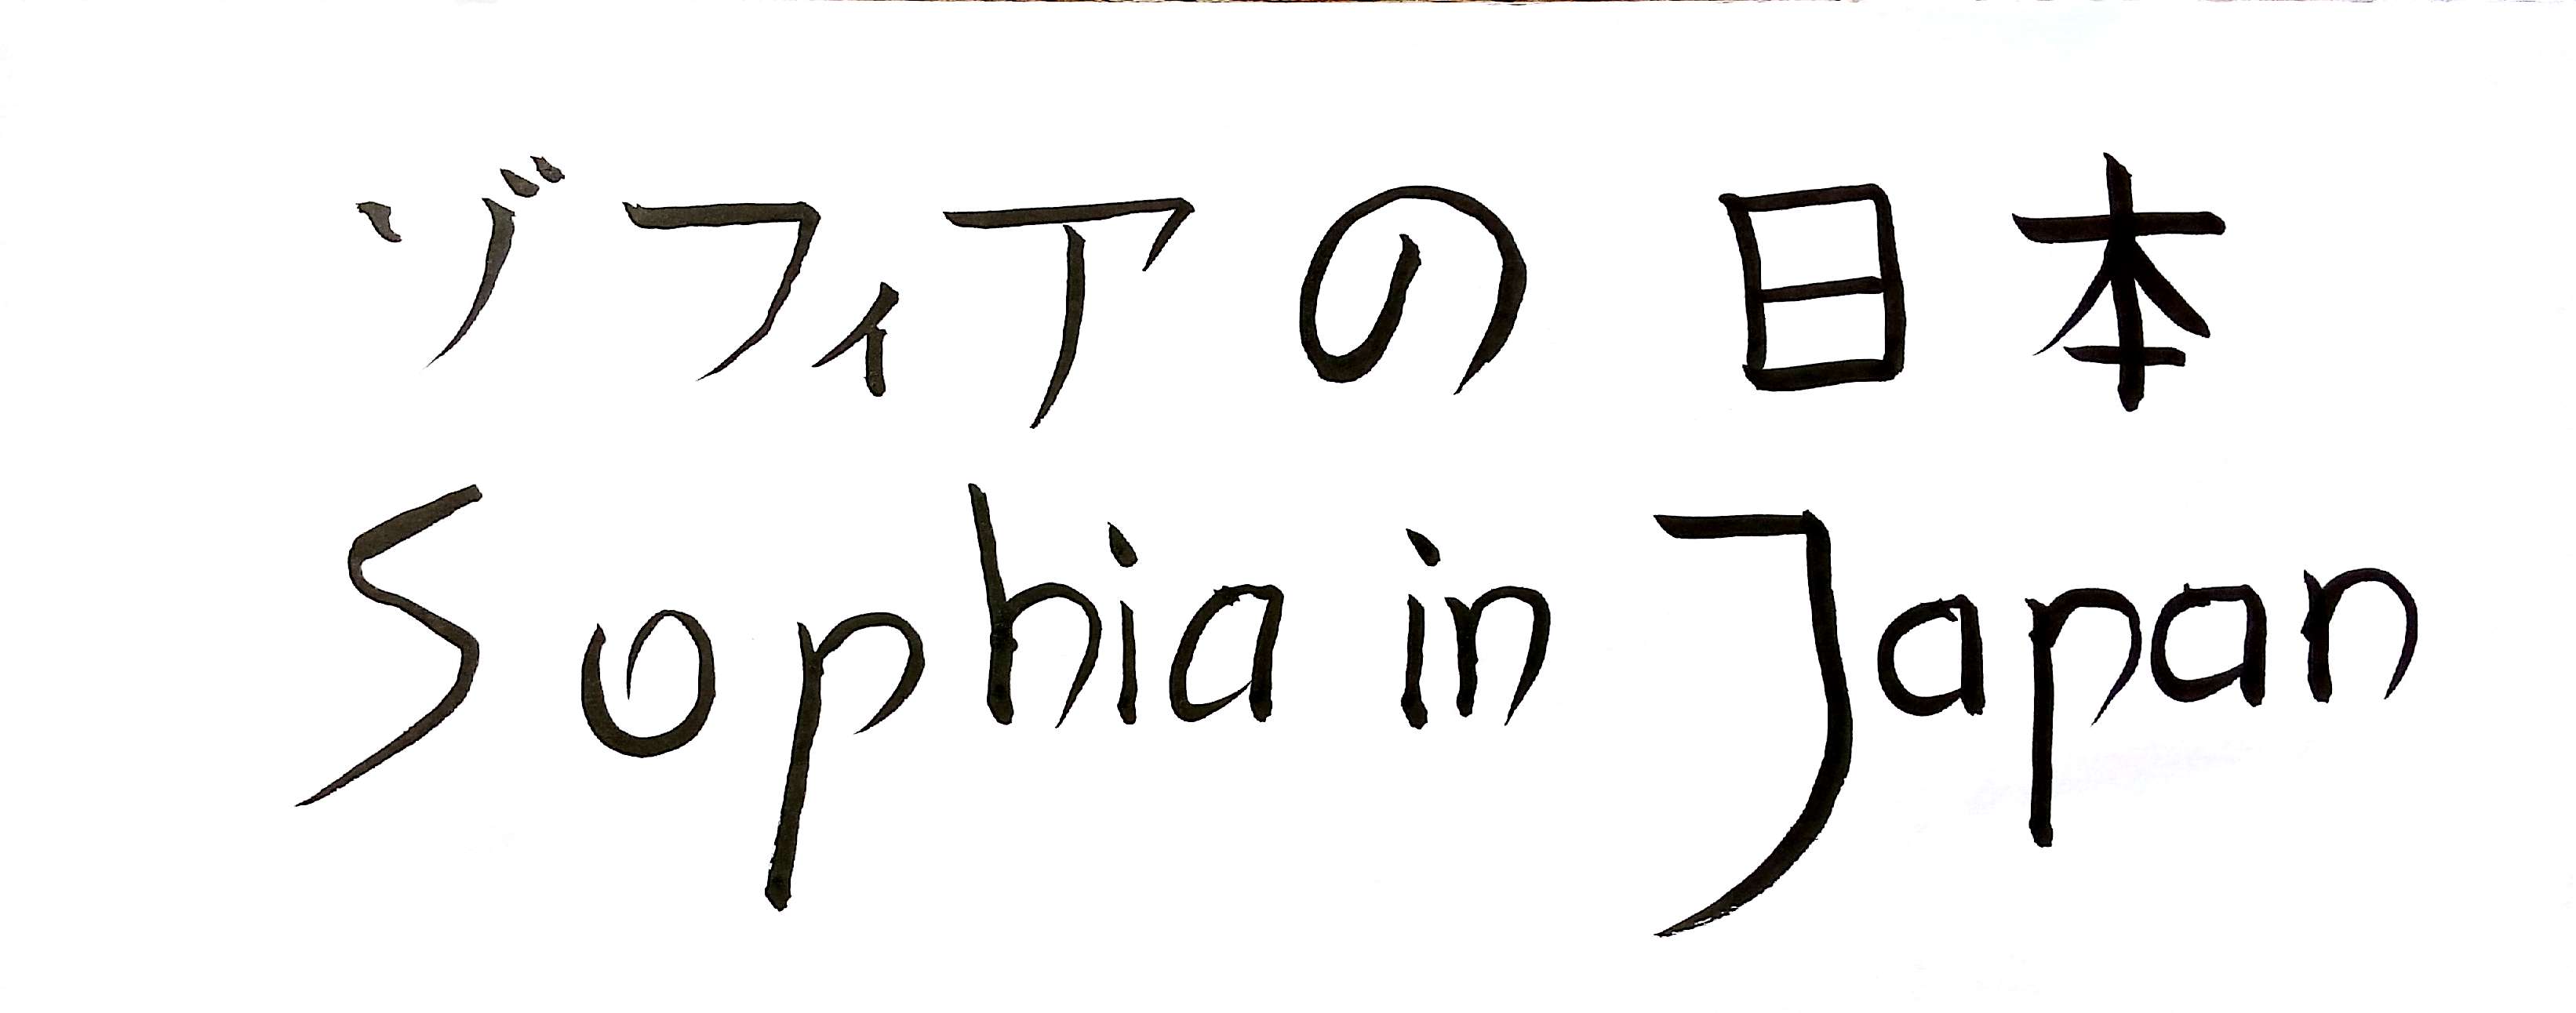 ゾフィアの日本
Sophia in Japan